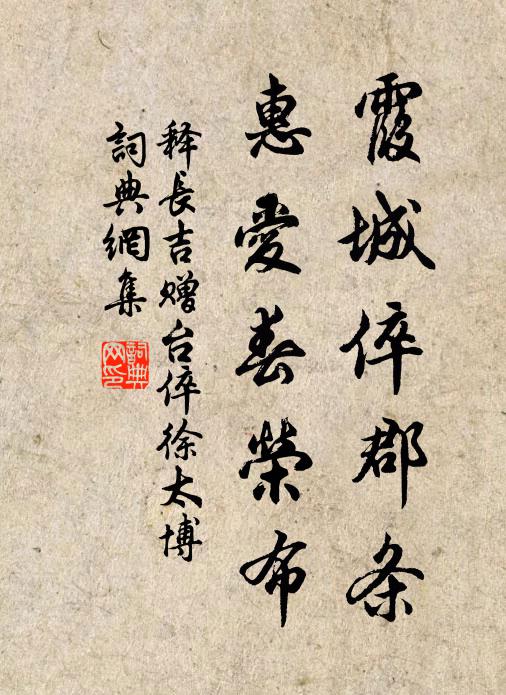 霞城倅郡条
惠愛春榮布
释長吉赠台倅徐太博
詞典網集
詞典网印